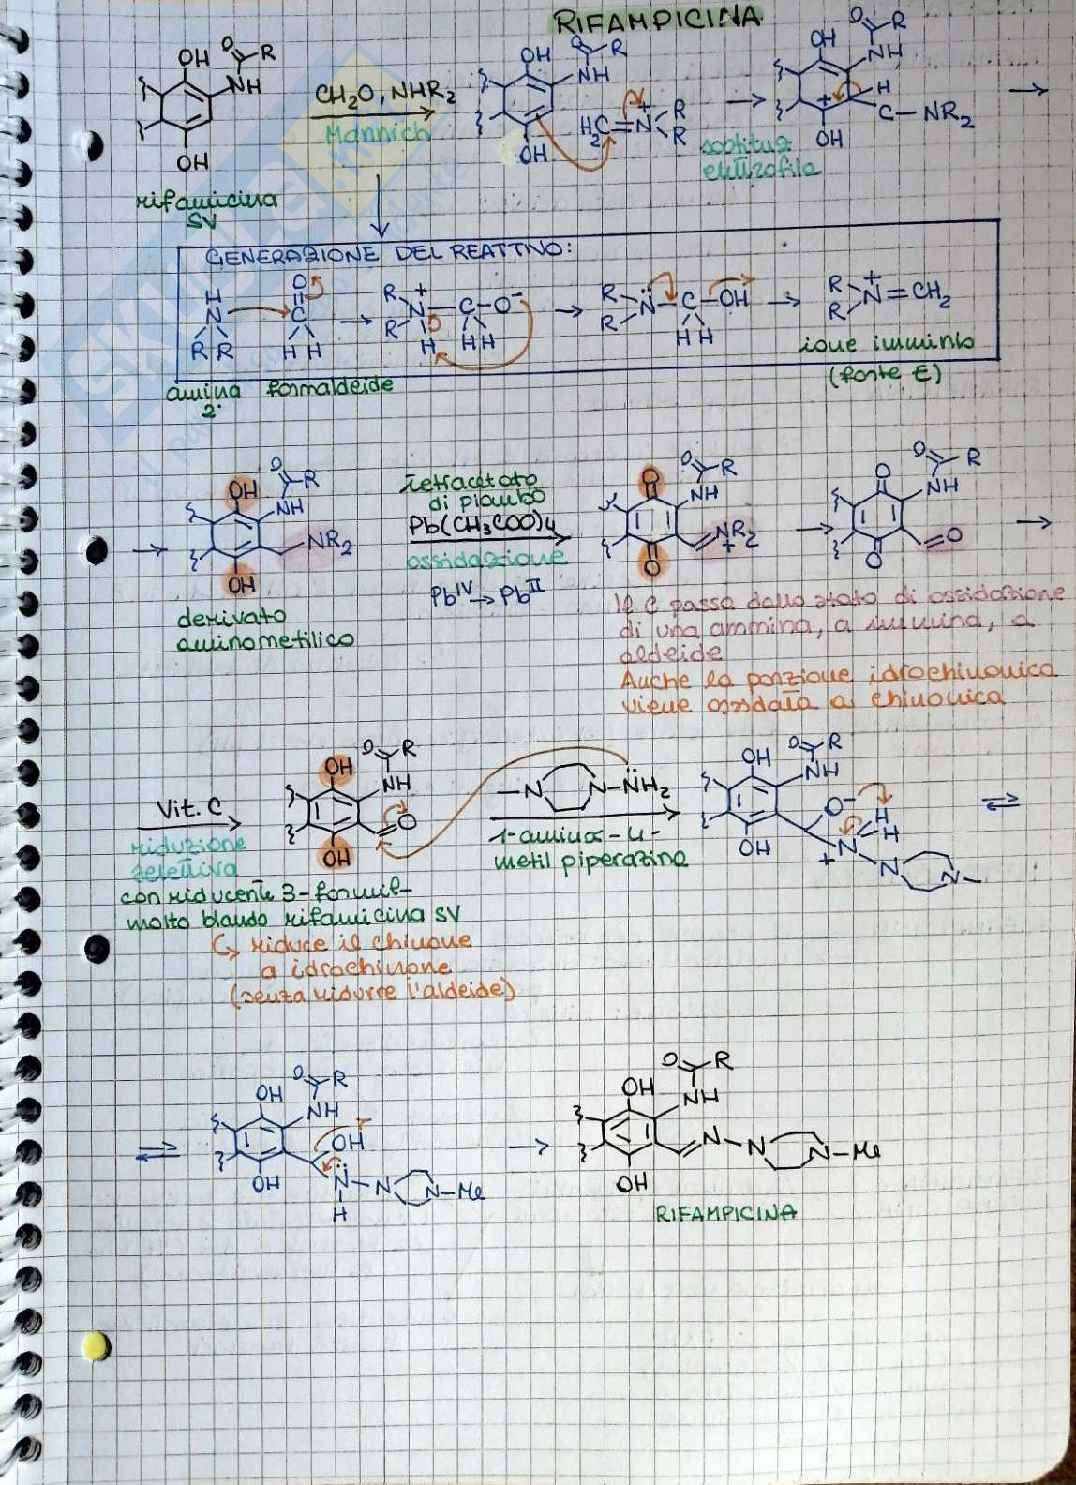 RIFAMPICINA
OH O R
NH
OH
CH2O, NHR2
Mannich
OH O R
NH
H2C=N+ R
R
OH
OH O R
NH
H
+ C-NR2
OH
rifamicina
SV
elettrofila
GENERAZIONE DEL REATTIVO:
H
N
R R
O
C
H H
R + C-O-
R N
H HH
R N-C-OH
R HH
R +
R N=CH2
ione imminio
(forte E)
amina formaldeide
2°
OH O R
NH
NR2
OH
derivato
aminometilico
Tetracetato
di piombo
Pb(CH3COO)4
ossidazione
PbIV→PbII
O O R
NH
NR2
+
O
O O R
NH
O
O
Il C passa dallo stato di ossidazione
di una ammina, a immina, a
aldeide
Anche la porzione idrochinonica
viene ossidata a chinonica
Vit. C
riduzione
selettiva
con riducente
molto blando
OH O R
NH
O
OH
3-formil-
rifamicina SV
↳ riduce il chinone
a idrochinone
(senza ridurre l'aldeide)
-N N-NH2
1-amino-4-
metil piperazina
OH O R
NH
O-
H
H
OH + N
N N-
OH O R
NH
OH
OH N-N N-Me
H
OH O R
NH
N-N N-Me
OH
RIFAMPICINA